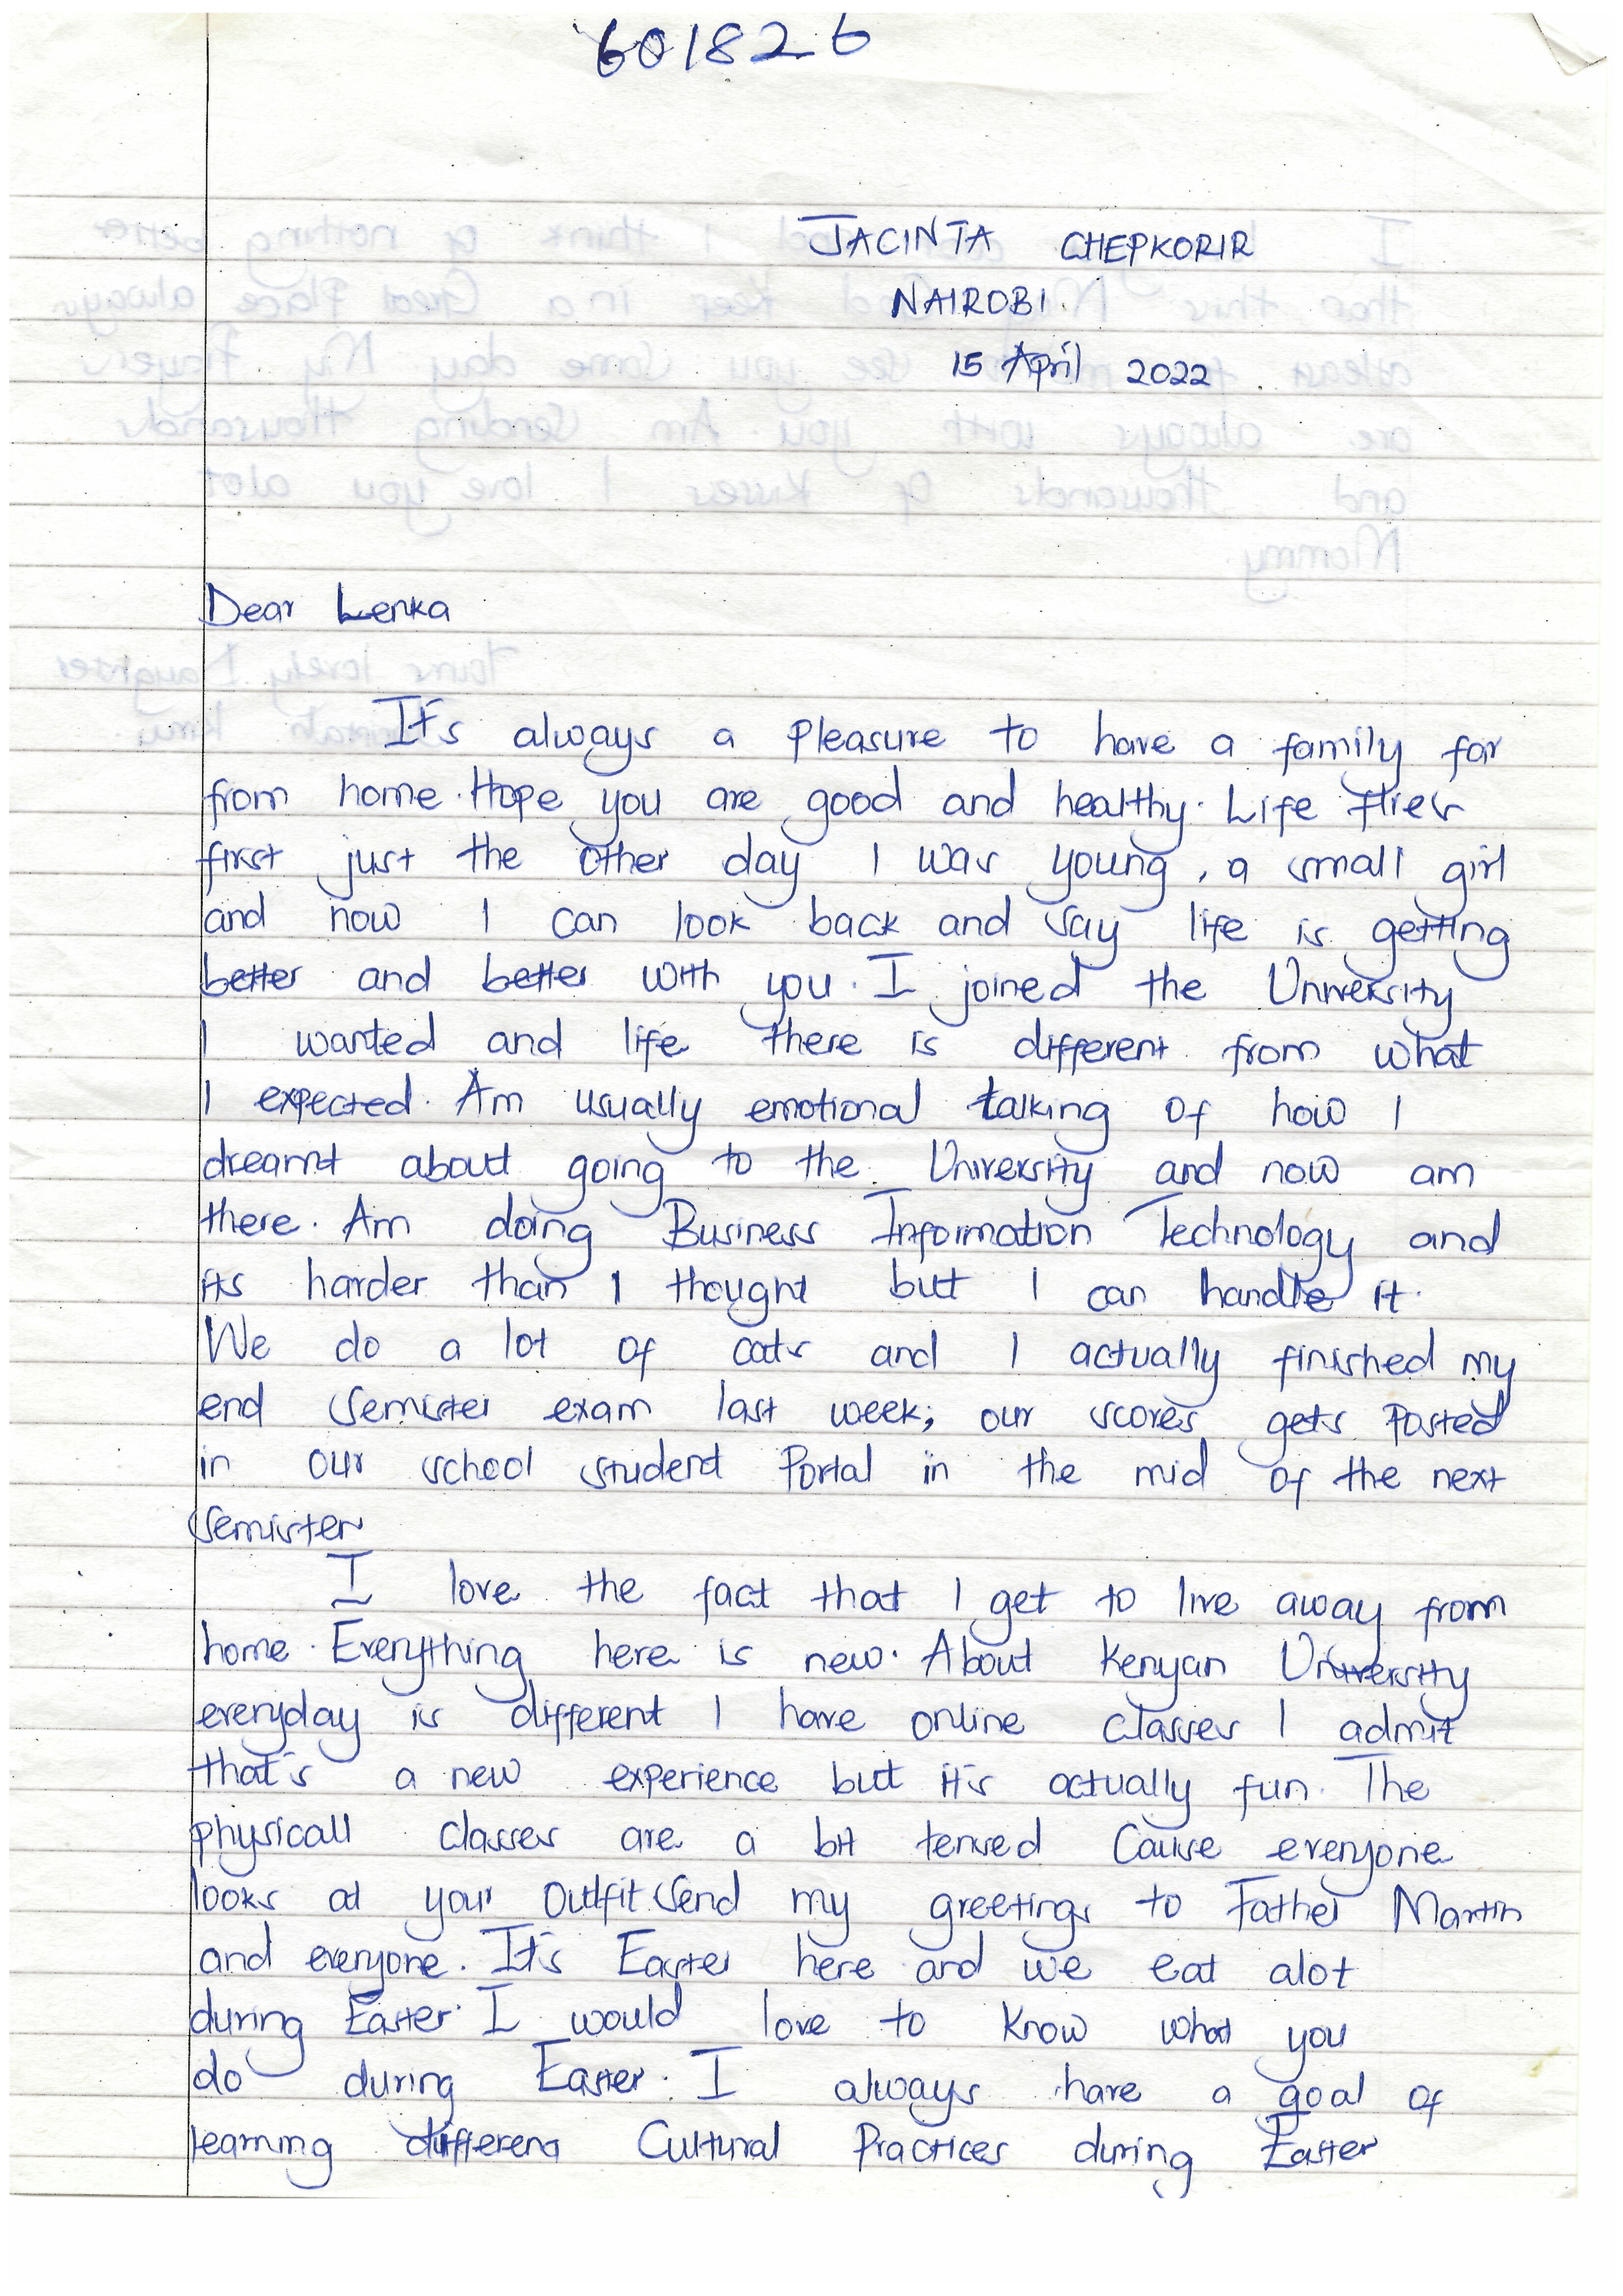 601826
JACINTA CHEPKORIR
NAIROBI.
15 April 2022.
Dear Lenka
It's always a pleasure to have a family far
from home. Hope you are good and healthy. Life flies
first just the other day I was young, a small girl
and now I can look back and say life is getting
better and better with you. I joined the University
I wanted and life there is different from what
I expected. Am usually emotional talking of how I
dreamt about going to the University and now am
there. Am doing Business Information Technology and
its harder than I thought but I can handle it.
We do a lot of cats and I actually finished my
end semister exam last week; our scores gets posted
in our school student Portal in the mid of the next
semister
I love the fact that I get to live away from
home. Everything here is new. About Kenyan University
everyday is different I have online classes I admit
that's a new experience but it's actually fun. The
physicall classes are a bit tensed Cause everyone
looks at your Outfit. Send my greetings to Father Martin
and everyone. It's Easter here and we eat alot
during Easter. I would love to know what you
do during Easter. I always have a goal of
learning different Cultural Practices during Easter